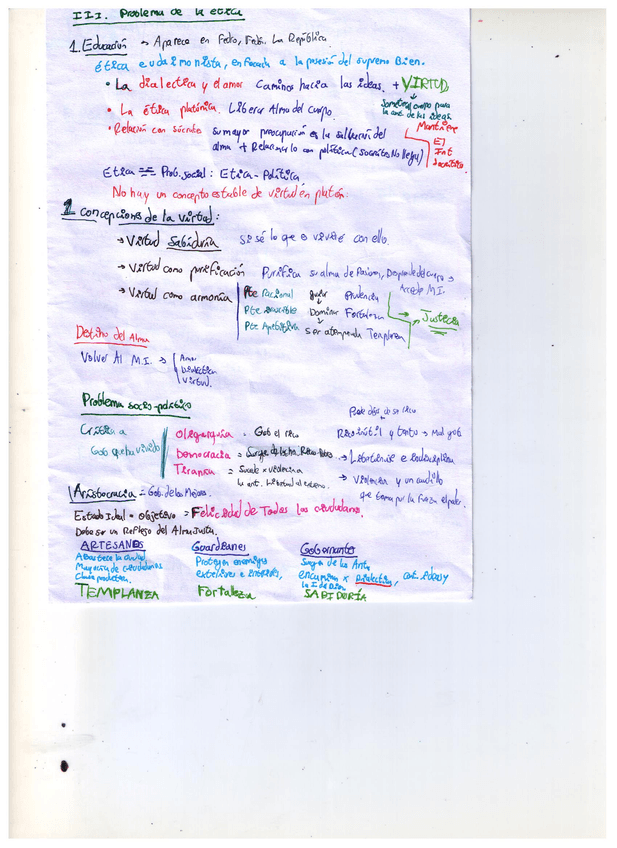 III. Problema de la etica
1. Educación → Aparece en Fedro, La República
ética eudaimonista, enfocada a la posesión del supremo Bien.
• La dialectica y el amor Caminos hacia las ideas. + VIRTUD
• La ética platónica. Liberar Alma del cuerpo.
Someter el cuerpo para
la cont. de las ideas
• Relación con sócrates su mayor preocupación es la salvación del
alma + Relacionarlo con política (Socrates No llega)
Mantiene
El
Int
Socrático
Etica = Prob. social: Etica - Política
No hay un concepto estable de virtud en platón.
1 Concepciones de la virtud:
→ Virtud Sabiduría si sé lo que es viviré con ello.
→ Virtud como purificación Purifica su alma de Pasiones, Desprende del cuerpo →
Accede M.I.
→ Virtud como armonía
Pte racional guiar Prudencia
Pte irascible Dominar Fortaleza → Justicia
Pte Apetitiva ser atemperada Templanza
Destino del Alma
Volver Al M.I. →
Amor
Dialéctica
Virtud.
Problema socio-político
Crítica a
Gob que ha vivido
Oligarquía = Gob el rico
Rico inútil y tonto → Mal gob
Democracia = Surge de lucha Ricos-Pobres → Libertinaje e indisciplina
Tirania = Sucede x violencia
la ant. libertad al extremo.
→ Violencia y un caudillo
que toma por la fuerza el poder.
Aristocracia = Gob. de los Mejores.
Estado Ideal = Objetivo → Felicidad de Todos los ciudadanos.
Debe ser un Reflejo del Alma Justa.
ARTESANOS Guardianes Gobernantes
Abastece la ciudad
Mayoría de ciudadanos
Clase productora.
Protegen enemigos
exteriores e interiores,
Surge de los Ant.
encumbra x Dialectica, cont. Ideas y
la I de Bien
TEMPLANZA Fortaleza SABIDURÍA